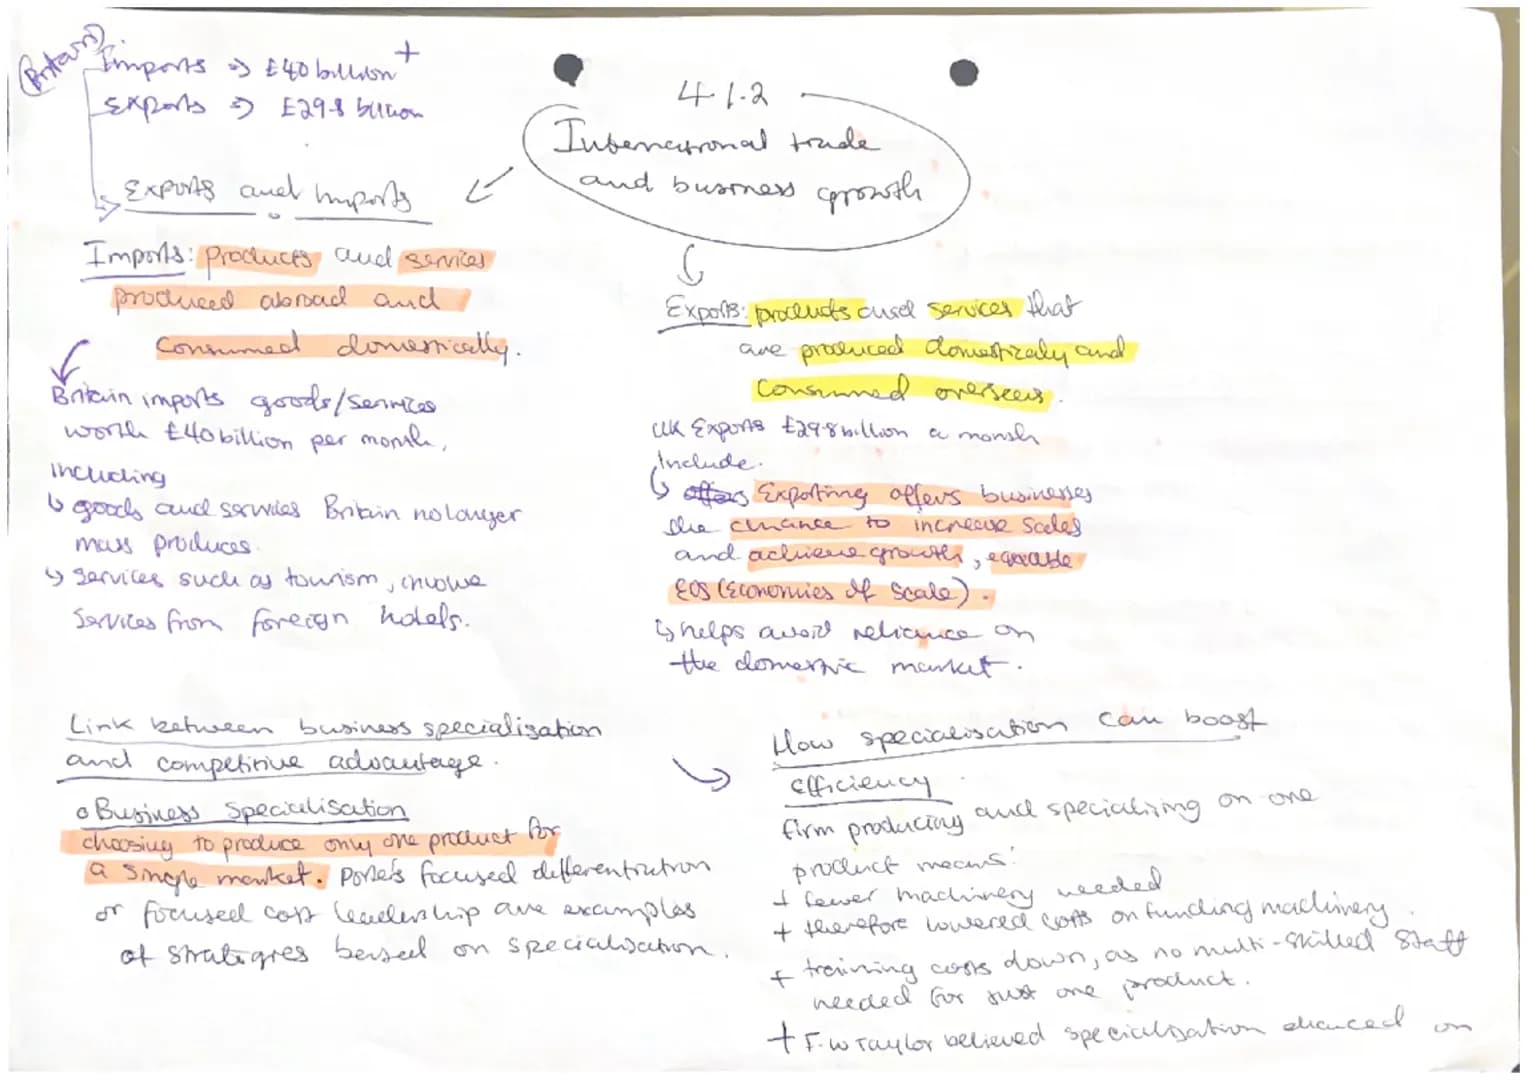 (Britain)
Imports => £40 billion +
Exports => £29.8 billion
4.1.2
International trade
and business growth
Exports and Imports
Imports: products and services
produced abroad and
consumed domestically.
Britain imports goods/services
worth £40 billion per month,
including
↳ goods and services Britain no longer
mass produces.
↳ services such as tourism, involve
services from foreign hotels.
Exports: products and services that
are produced domestically and
consumed overseas.
UK Exports £29.8 billion a month
Include.
↳ offers Exporting offers businesses
the chance to increase scales
and achieve growth,
EOS (Economies of Scale).
↳ helps avoid reliance on
the domestic market.
Link between business specialization
and competitive advantage.
o Business Specialisation
choosing to produce only one product for
a single market. Porter's focused differentiation
or focused cost leadership are examples
of strategies based on specialisation.
How specialisation can boost
efficiency.
firm producing and specialising on one
product means:
+ fewer machinery needed
+ therefore lowered costs on funding machinery.
+ training costs down, as no multi-skilled staff
needed for just one product.
+ F.W Taylor believed specialisation on